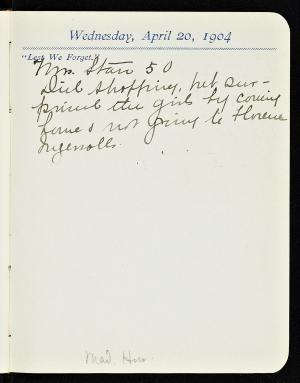 Wednesday, April 20, 1904
"Lest We Forget."
Mrs. Starr 50
Did shopping, but sur-
prised the girls by coming
home & not going to Florence
Ingersolls.
Mad.